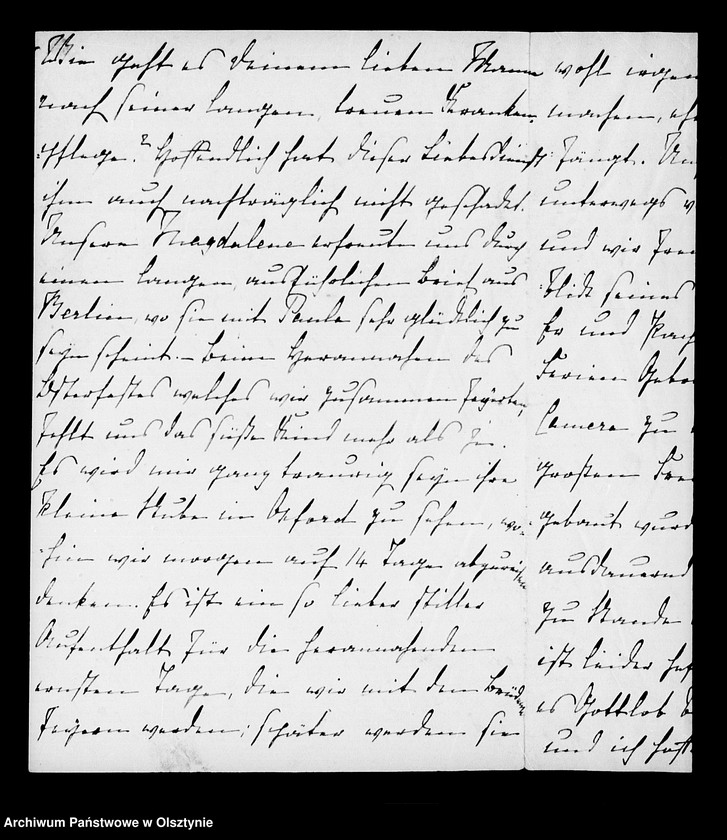 Wie geht es Deinem lieben Manne
nach seiner langen, treuen Kranken
-pflege? Hoffendlich hat dieser Liebesdienst
ihm auch nachträglich nicht geschadet.
Unsere Magdalene erfreut uns durch
einen langen, ausführlichen Brief aus
Berlin, wo sie mit Paula sehr glücklich zu
seyn scheint. – Beim Herannahen des
Osterfestes welches wir zusammen feyerten,
fehlt uns das süße Kind mehr als je.
Es wird mir ganz traurig seyn ihre
kleine Stube in Oxford zu sehen, wo-
hin wir morgen auf 14 Tage abzureisen
denken. Es ist ein so lieber stiller
Aufenthalt für die herannahenden
ernsten Tage, die wir mit den
feyern werden; später werden sie
wohl irgen
machen, eh
fängt. Un
unterwegs
und wir freu
-blick seines
Er und
Ferien
Camera zu
großen
gebaut wurd
ausdauernd
zu Stande
ist leider
es Gottlob
und ich hoff
Archiwum Państwowe w Olsztynie